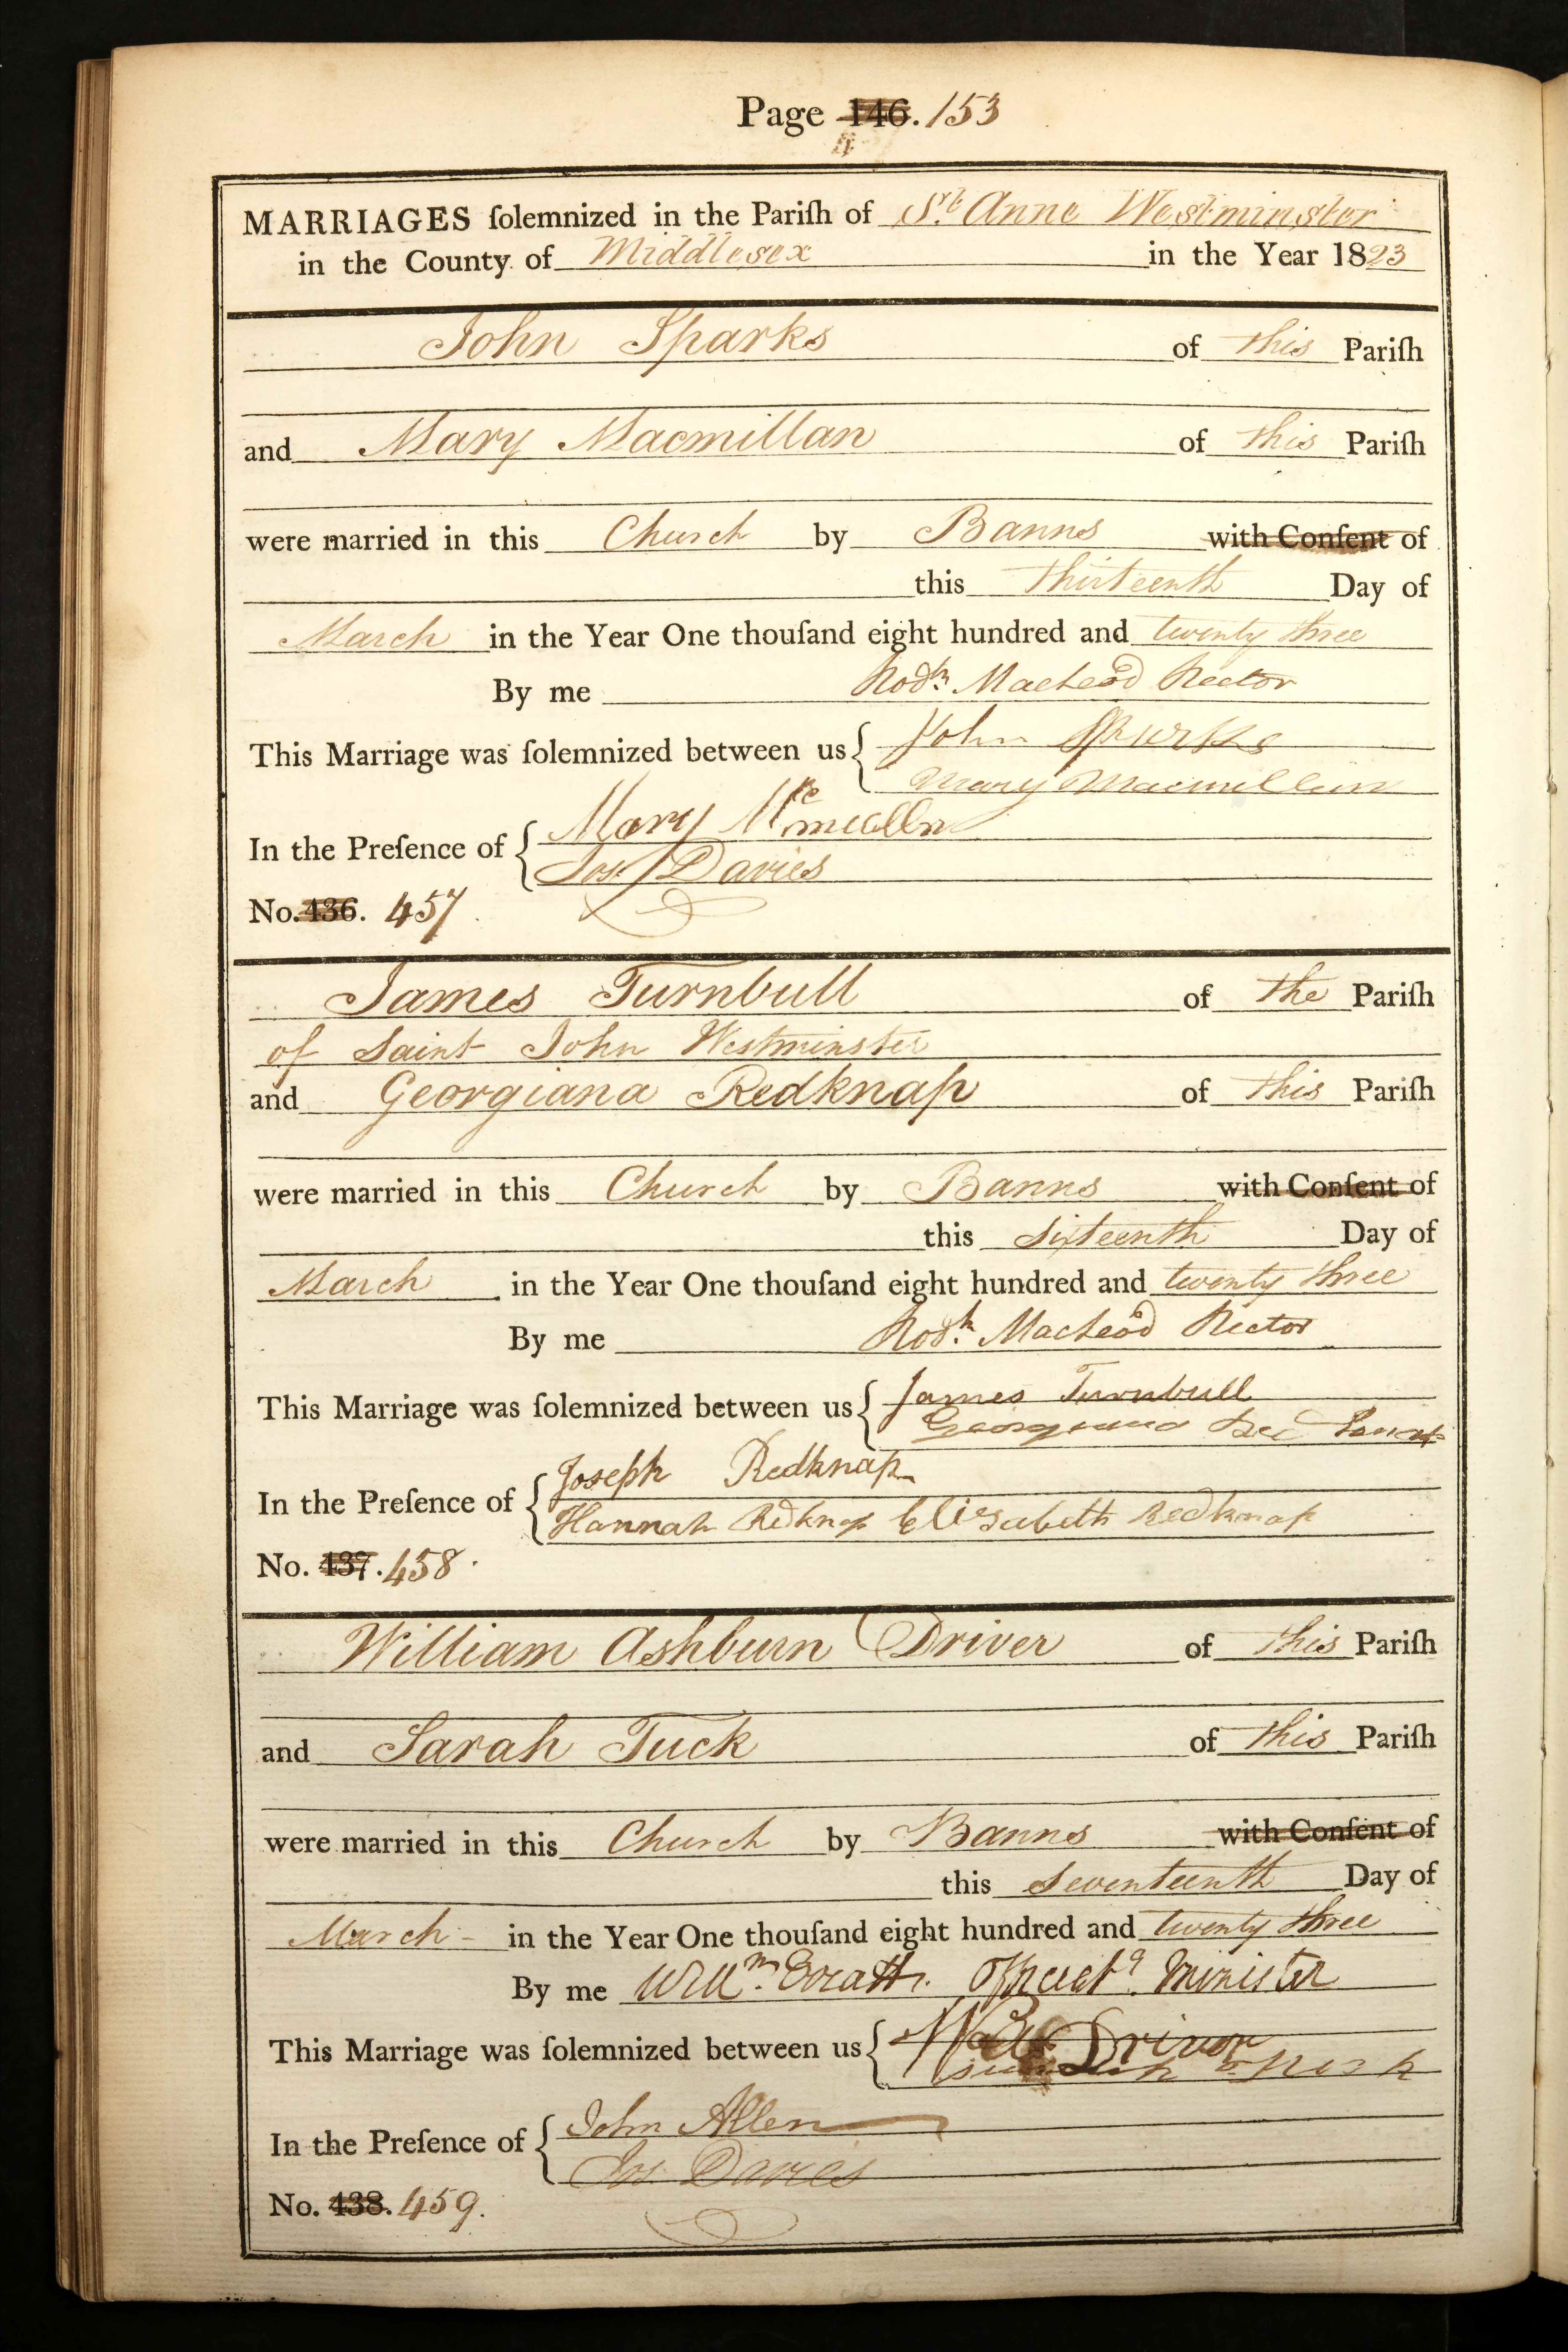 Page 146. 153
MARRIAGES ſolemnized in the Pariſh of St. Anne Westminster
in the County of Middlesex in the Year 1823
John Sparks of this Pariſh
and Mary Macmillan of this Pariſh
were married in this Church by Banns with Conſent of
this thirteenth Day of
March in the Year One thouſand eight hundred and twenty three
By me Rodk. Macleod Rector
This Marriage was ſolemnized between us { John Sparks
Mary Macmillan
In the Preſence of { Mary
Jos. Davies
No. 436. 457
James Turnbull of the Pariſh
of Saint John Westminster
and Georgiana Redknap of this Pariſh
were married in this Church by Banns with Conſent of
this Sixteenth Day of
March in the Year One thouſand eight hundred and twenty three
By me Rodk. Macleod Rector
This Marriage was ſolemnized between us { James Turnbull
Joseph Redknap
In the Preſence of {
Hannah Redknap Elizabeth Redknap
No. 437. 458.
William Ashburn Driver of this Pariſh
and Sarah Tuck of this Pariſh
were married in this Church by Banns with Conſent of
this Seventeenth Day of
March in the Year One thouſand eight hundred and twenty three
By me Willm. Minister
This Marriage was ſolemnized between us { Driver
In the Preſence of { John Allen
Jos. Davies
No. 438. 459.